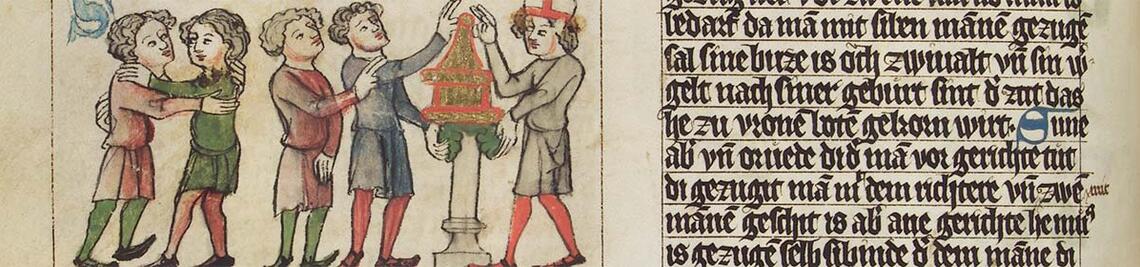 bedarf da mā mit siben mānē gezuge
sal sine buze is och zwiualt vn̄ sin w̄
gelt nach siner geburt sint d' zit das
he zu vronē botē gekorn wirt. Sune
ab' vn̄ orvede di d' mā vor gerichte tut
di gezugit mā mit dem richtere vn̄ zwē
mānē geschit is ab' ane gerichte he mus
is gezugē selb sibinde d' dem māne di